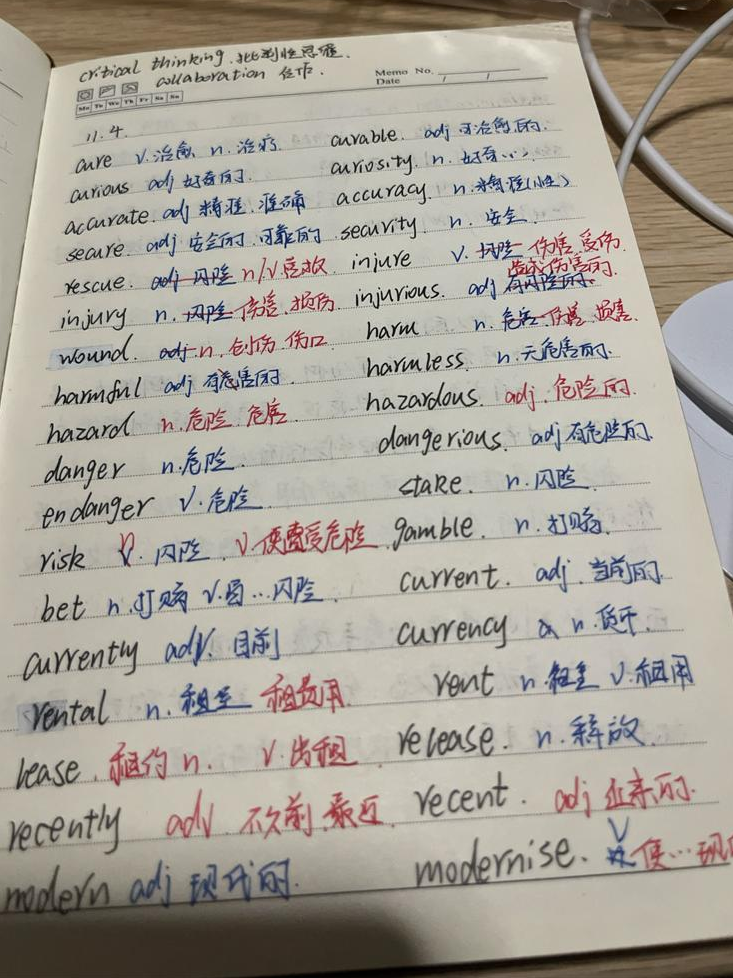 critical thinking. 批判性思维.
collaboration 合作.
Memo No.
Date / /
Mo Tu We Th Fr Sa Su
11.4.
cure v.治愈 n.治疗 curable. adj 可治愈的.
curious adj 好奇的. curiosity. n. 好奇心.
accurate. adj 精准.准确 accuracy. n.精准(性)
secure. adj 安全的.可靠的 security. n. 安全.
rescue. adj 风险 n/v 营救 injure v. 风险 伤害.受伤.
injury n. 风险 伤害.损伤. injurious. adj 有风险的. 造成伤害的.
wound. adj n. 创伤.伤口. harm n. 危害 伤害.损害.
harmful adj 有危害的. harmless n.无危害的.
hazard n.危险 危害 hazardous. adj.危险的.
danger n.危险. dangerious. adj有危险的.
endanger v.危险 stake. n.风险.
risk n. 风险 v.使遭受危险 gamble. n.打赌.
bet n.打赌 v.冒...风险. current. adj.当前的.
currently adv.目前 currency n.货币.
rental n.租金 租费用. rent n.租金 v.租用
lease.租约 n. v.出租 release. n.释放.
recently adv 不久前.最近. recent. adj 近来的.
modern adj 现代的. modernise. v 使...现